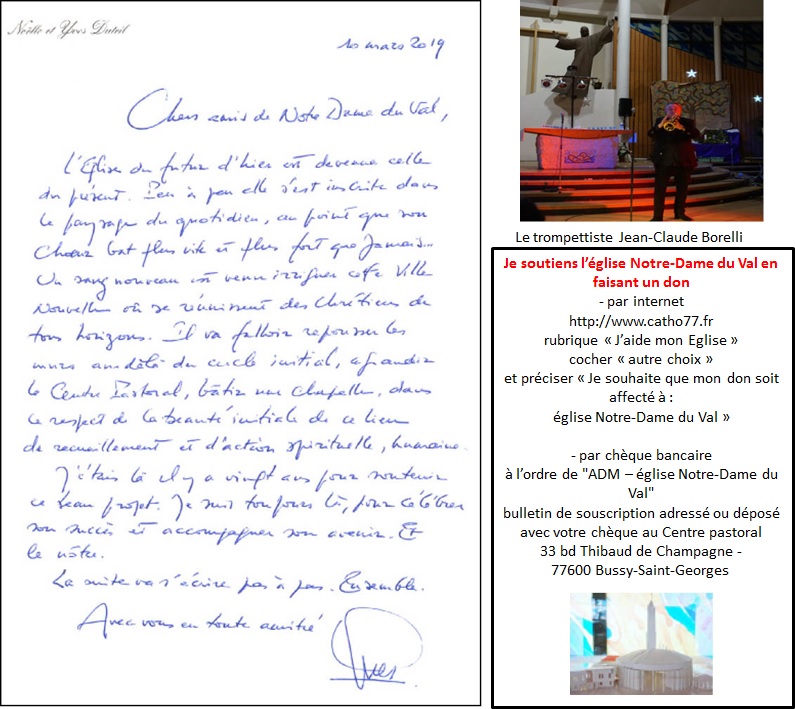 Noëlle et Yves Duteil
10 mars 2019
Chers amis de Notre Dame du Val,
L'Eglise du futur d'hier est devenue celle
du présent. Peu à peu elle s'est inscrite dans
le paysage du quotidien, au point que son
Choeur bat plus vite et plus fort que jamais...
Un sang nouveau est venu irriguer cette Ville
Nouvelle où se réunissent des Chrétiens de
tous horizons. Il va falloir repousser les
murs au-delà du cercle initial, agrandir
le Centre Pastoral, bâtir une chapelle, dans
le respect de la beauté initiale de ce lieu
de recueillement et d'action spirituelle, humaine.
J'étais là il y a vingt ans pour soutenir
ce beau projet. Je suis toujours là, pour célébrer
son succès et accompagner son avenir. Et
le nôtre.
La suite va s'écrire pas à pas. Ensemble.
Avec vous en toute amitié
Yves
Le trompettiste Jean-Claude Borelli
Je soutiens l'église Notre-Dame du Val en
faisant un don
- par internet
http://www.catho77.fr
rubrique « J'aide mon Eglise »
cocher « autre choix »
et préciser « Je souhaite que mon don soit
affecté à :
église Notre-Dame du Val »
- par chèque bancaire
à l'ordre de "ADM – église Notre-Dame du
Val"
bulletin de souscription adressé ou déposé
avec votre chèque au Centre pastoral
33 bd Thibaud de Champagne -
77600 Bussy-Saint-Georges